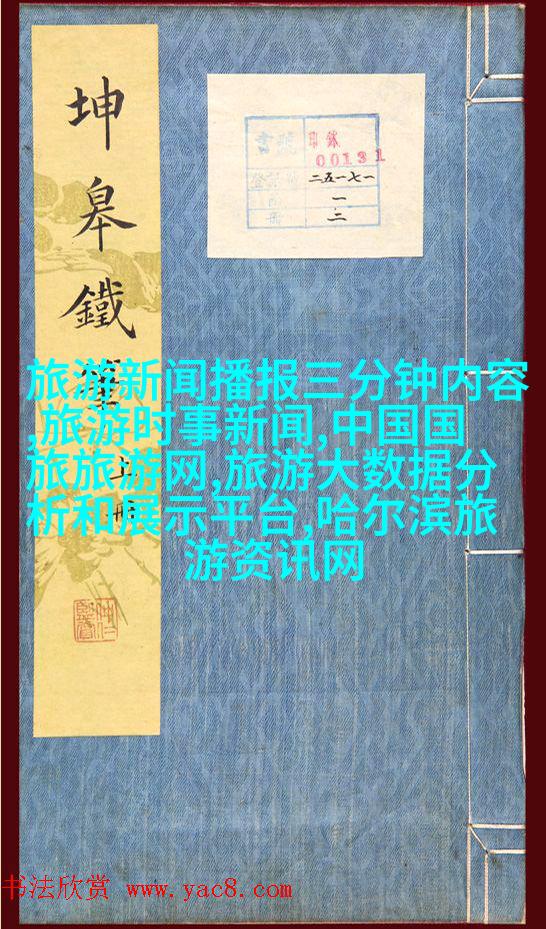 坤皋鐵筆
上冊
書號
印錄
00131
二五一七一
一
二
旅游新闻播报三分钟内容
,旅游时事新闻,中国国
旅旅游网,旅游大数据分
析和展示平台,哈尔滨旅
游资讯网
书法欣赏 www.yac8.com